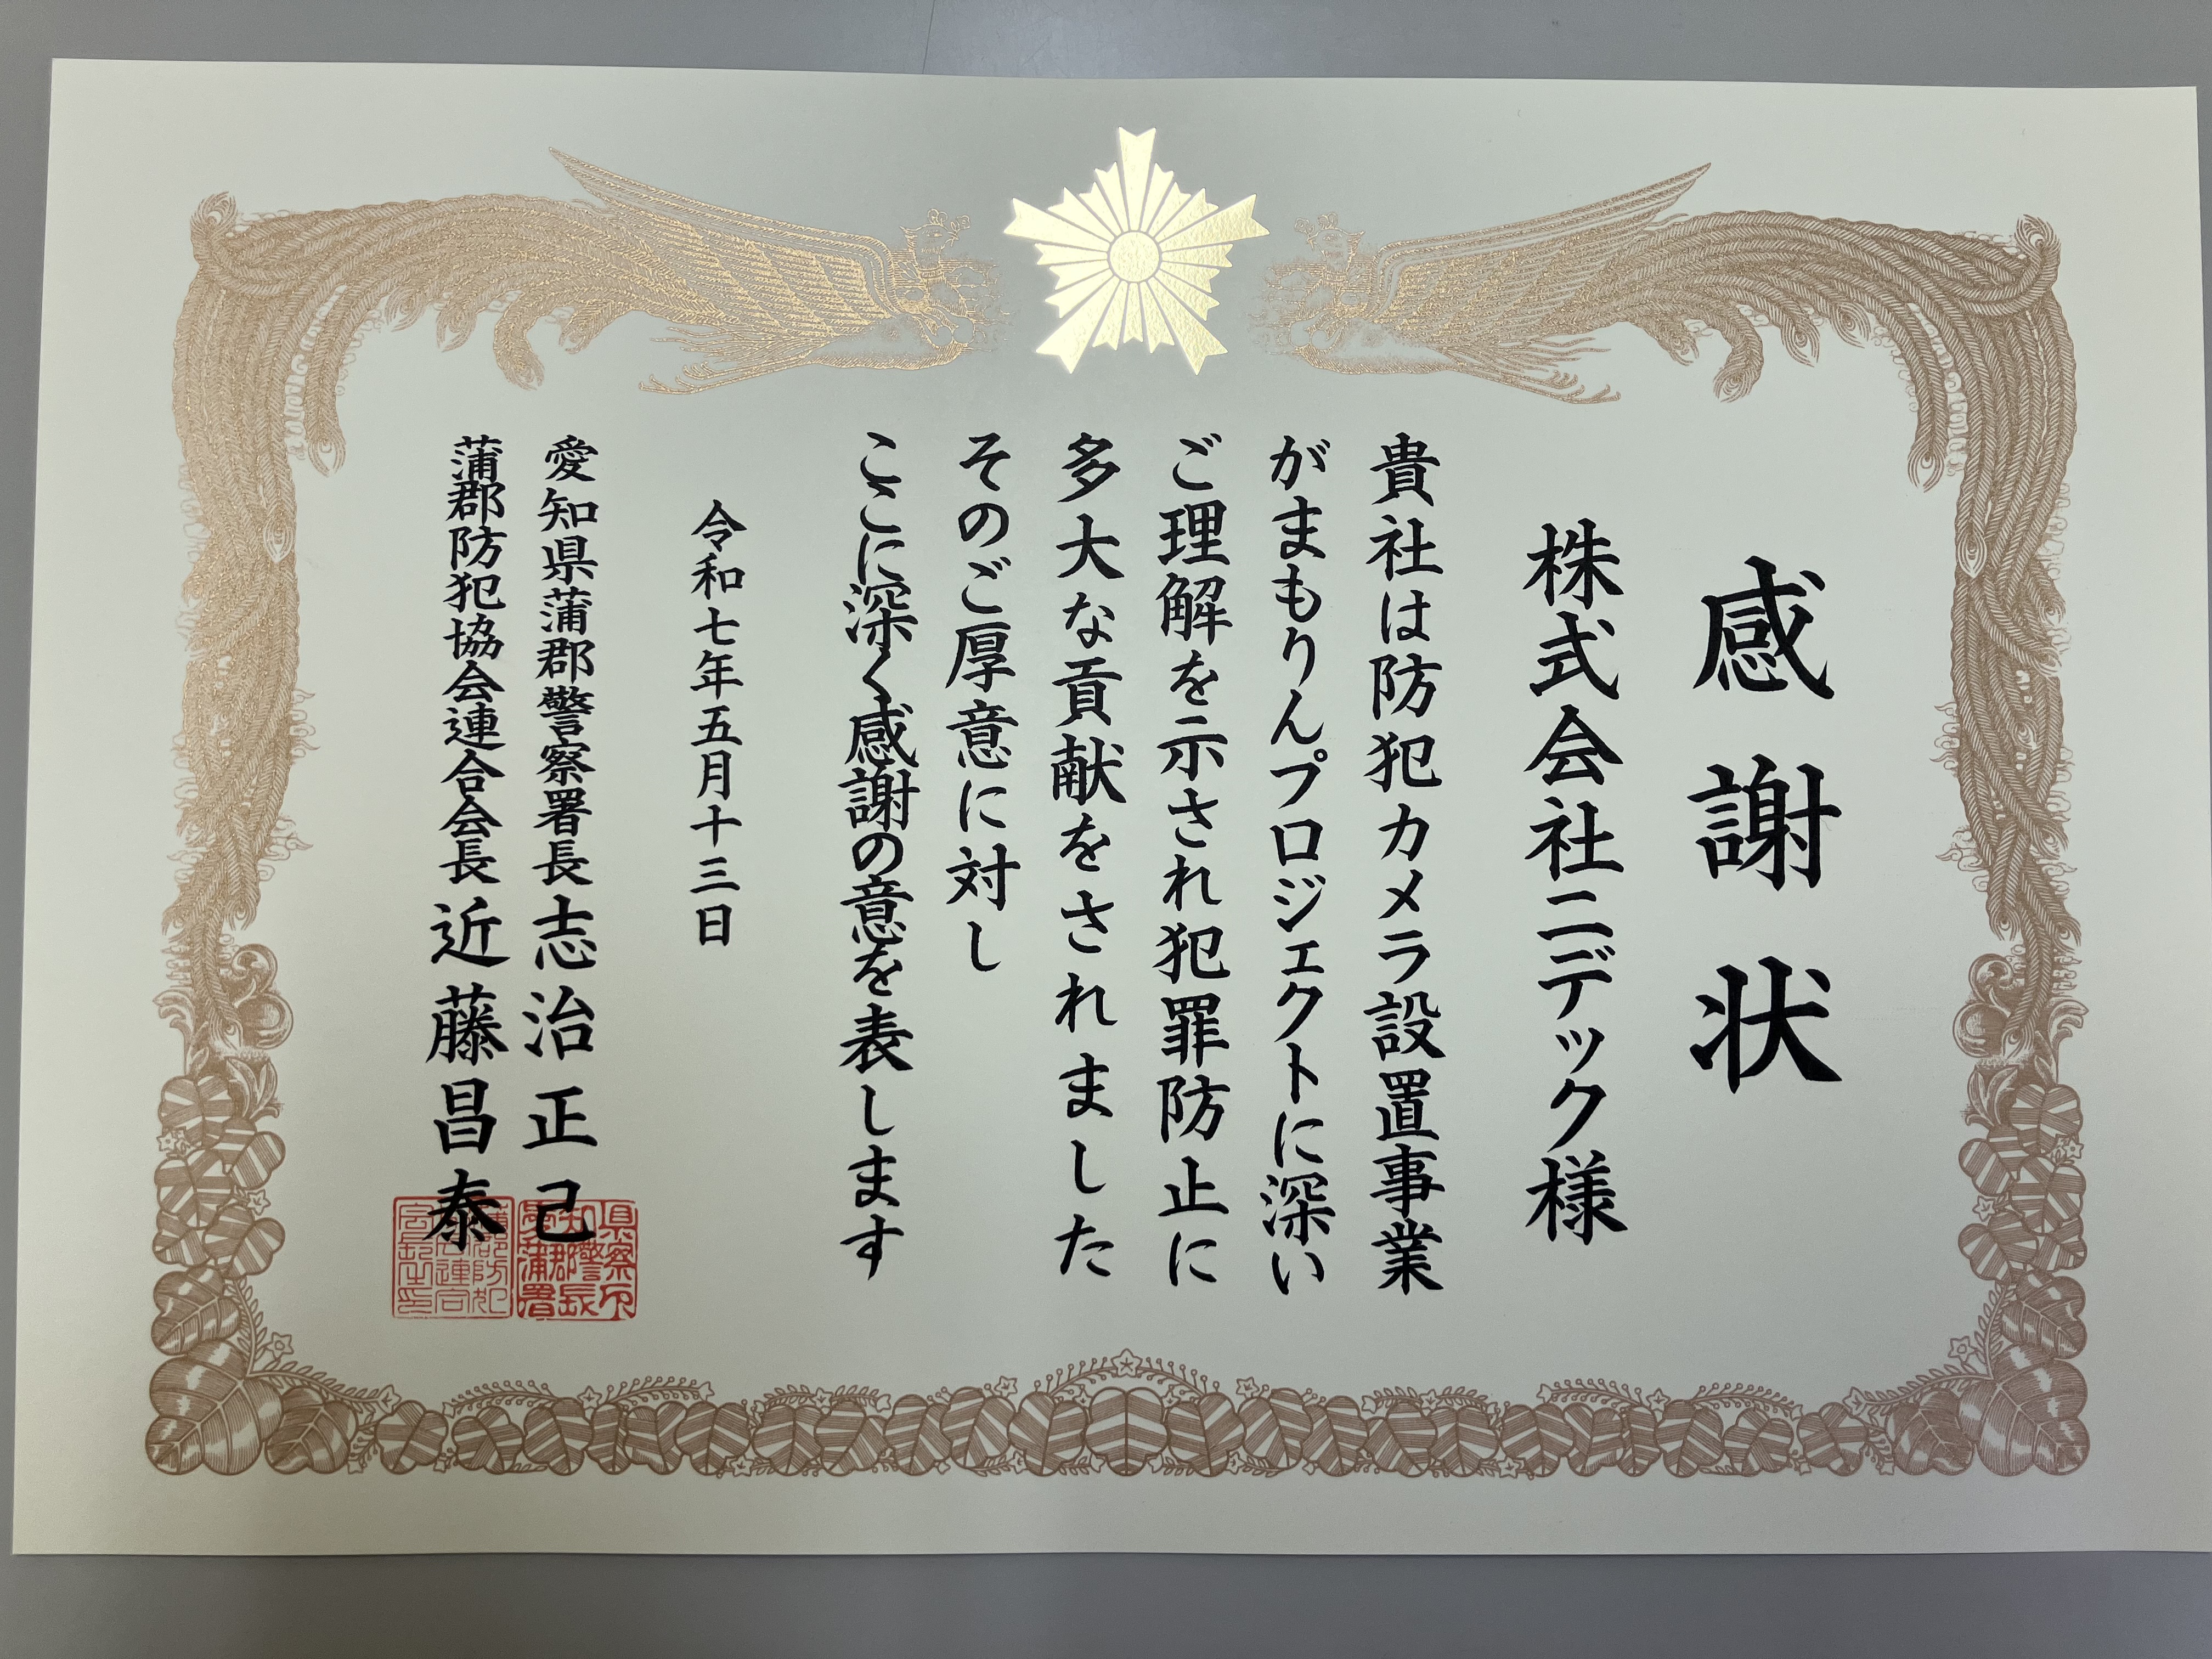 感謝状
株式会社ニデック様
貴社は防犯カメラ設置事業
がまもりんプロジェクトに深い
ご理解を示され犯罪防止に
多大な貢献をされました
そのご厚意に対し
ここに深く感謝の意を表します
令和七年五月十三日
愛知県蒲郡警察署長志治正己
蒲郡防犯協会連合会長近藤昌泰